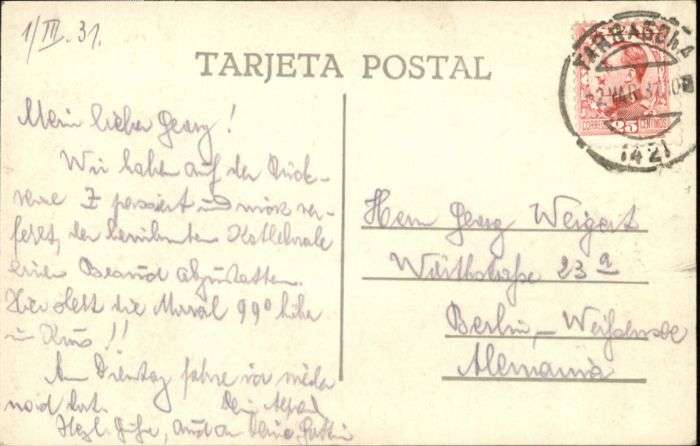 1/III.31.
TARJETA POSTAL
TARRAGONA
2 MAR 31
(42)
CORREOS 25 CENTIMOS
Mein lieber Georg!
Wir haben auf der Rück-
reise Z passiert und nicht ver-
fehlt, der berühmten Kathedrale
einen Besuch abzustatten.
Hier die 99%
in
Am Dienstag fahre ich wieder
nach Dein Alfred
Herzl. Grüße, auch an Deine Gattin
Herrn Georg Weigert
Wörthstraße 23 a
Berlin, – Weißensee
Alemania